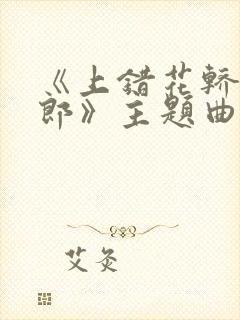 《上错花轿
郎》主题曲
艾灸